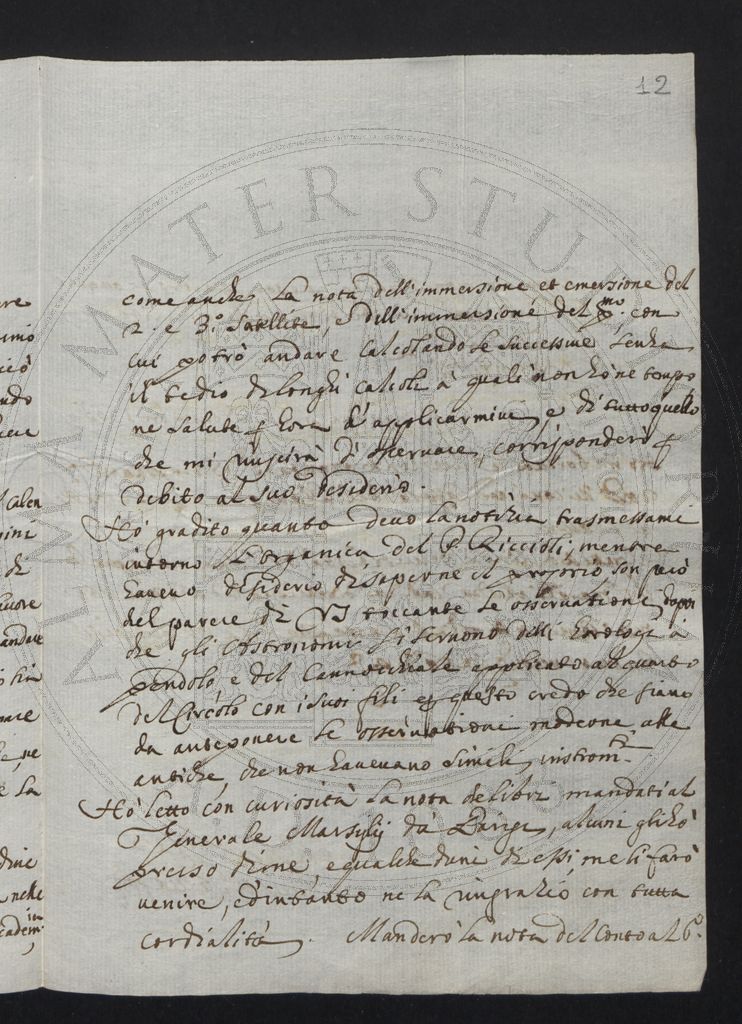 12
come anche la nota dell'immersione et emersione del
2. e 3.º Satellite, e dell'immersione del p.mo con
cui potrò andare calcolando le successive senza
il tedio di longhi calcoli à quali non hò ne tempo
ne salute p hora d'applicarmivi, e di tutto quello
che mi riuscirà d'osservare, corrisponderò p
debito al suo desiderio.
Hò gradito quanto devo la notizia trasmessami
intorno l'organica del P. Riccioli, mentre
havevo desiderio di saperne il proprio, son però
del parere di VS toccante le osservationi, dopo
che gli Astronomi si servono delli horologi à
pendolo e del Cannocchiale applicato al quarto
del Circolo con i suoi fili e p questo credo che siano
da anteporre le osservationi moderne alle
antiche, che non havevano simili instrom.ti
Hò letto con curiosità la nota de libri mandati al
Generale Marsylij da Parigi, alcuni gli hò
preso di me, e qualche d'uni di essi me li farò
venire, ed in tanto ne la ringrazio con tutta
cordialità. Manderò la nota del Conto al
ALMA MATER STUDIORUM